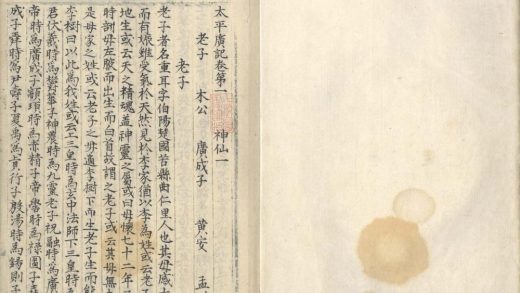 太平廣記卷第一 神仙一
老子 木公 廣成子 黃安 孟
老子
老子者名重耳字伯陽楚國苦縣曲仁里人也其母感大
而有娠雖受氣於天然見於李家猶以李為姓或云老子
地生或云天之精魂盖神靈之屬或曰母懷七十二年
時剖母左腋而出生而白首故謂之老子或云其母無
是母家之姓或云老子之母適李樹下而生老子生而能
李樹曰以此為我姓或云上三皇時為玄中法師下三皇時
君伏羲時為鬱華子神農時為九靈老子祝融時為
帝時為廣成子顓頊時為赤精子帝嚳時為祿圖子
成子舜時為尹壽子夏禹時為真行子殷湯時為錫則子